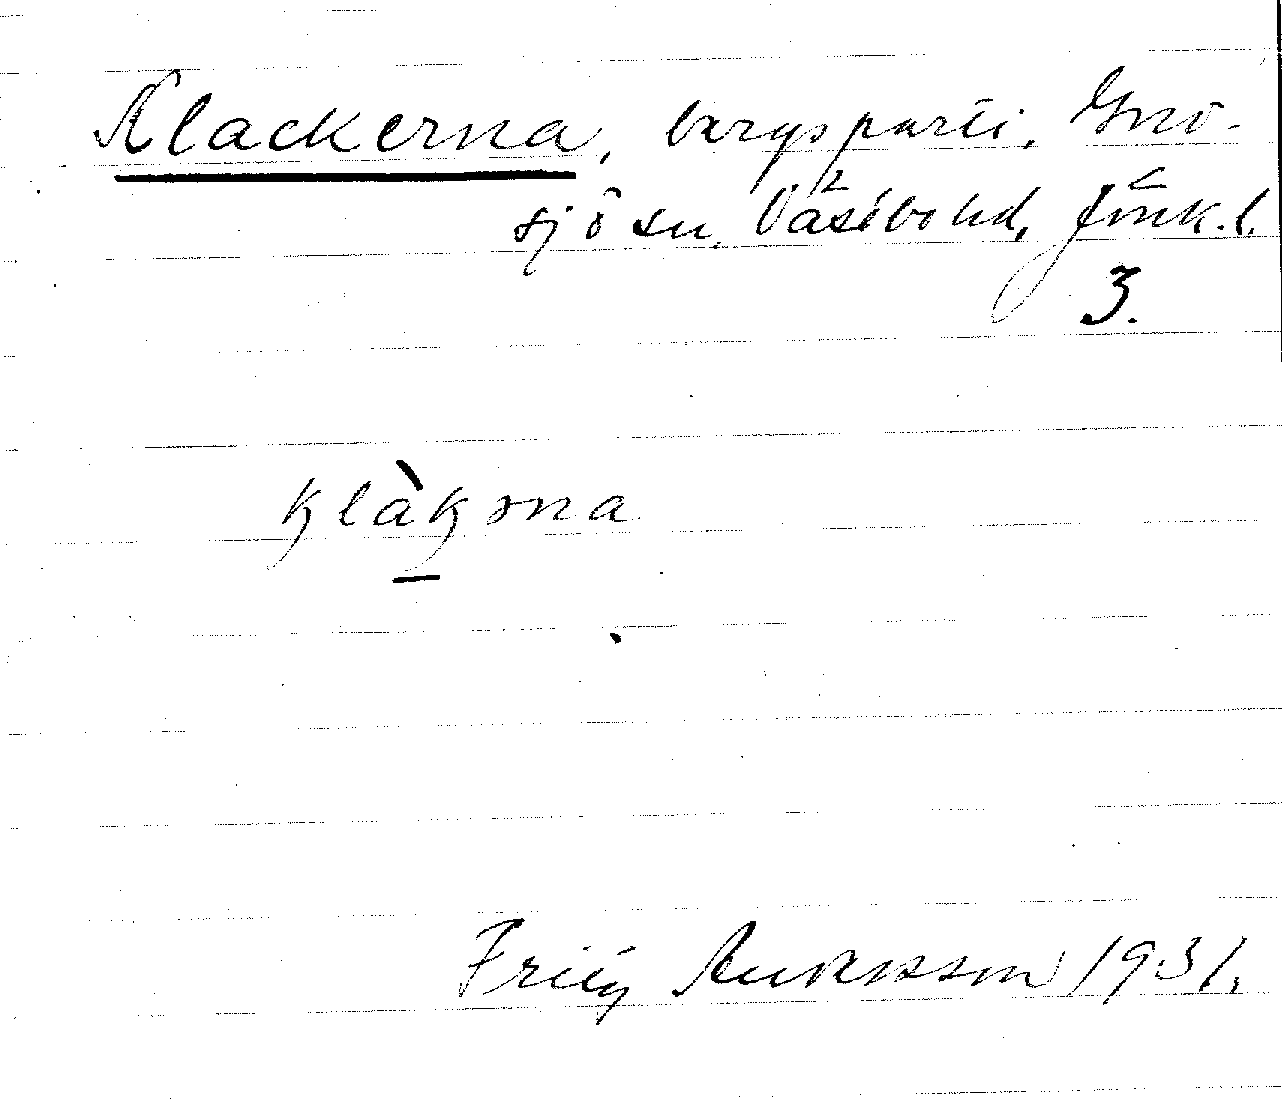 Klackerna, bergsparti, Gnö-
sjö sn, Västbo hd, Jönk. l.
3.
klàkǝna
Fritz Andersson 1931.